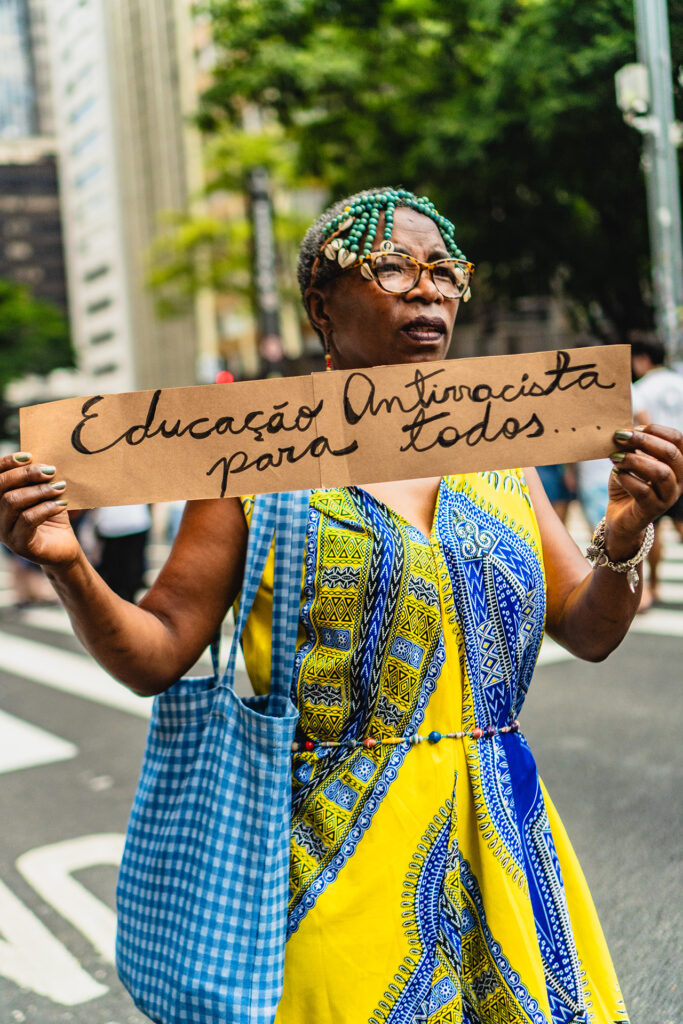 Educação Antirracista
para todos...